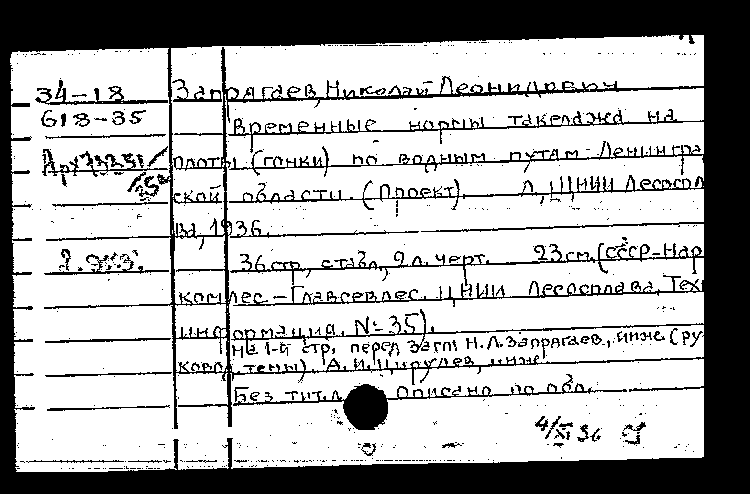 34-18 Запрягаев, Николай Леонидович
618-35 Временные нормы такелажа на
Арх плоты (гонки) по водным путям Ленинград
ской области. (Проект). Л, ЦНИИ Лесоспл
ва, 1936.
2 экз. 36 стр., с табл, 2 л. черт. 23 см. (СССР-Нар
комлес-Главсевлес. ЦНИИ Лесосплава, Техн
информация. № 35).
На 1-й стр. перед загл: Н.Л. Запрягаев, инж. (ру
ковод. темы). А.И. Цирулев, инж.
Без тит.л. Описано по обл.
4/XI 36